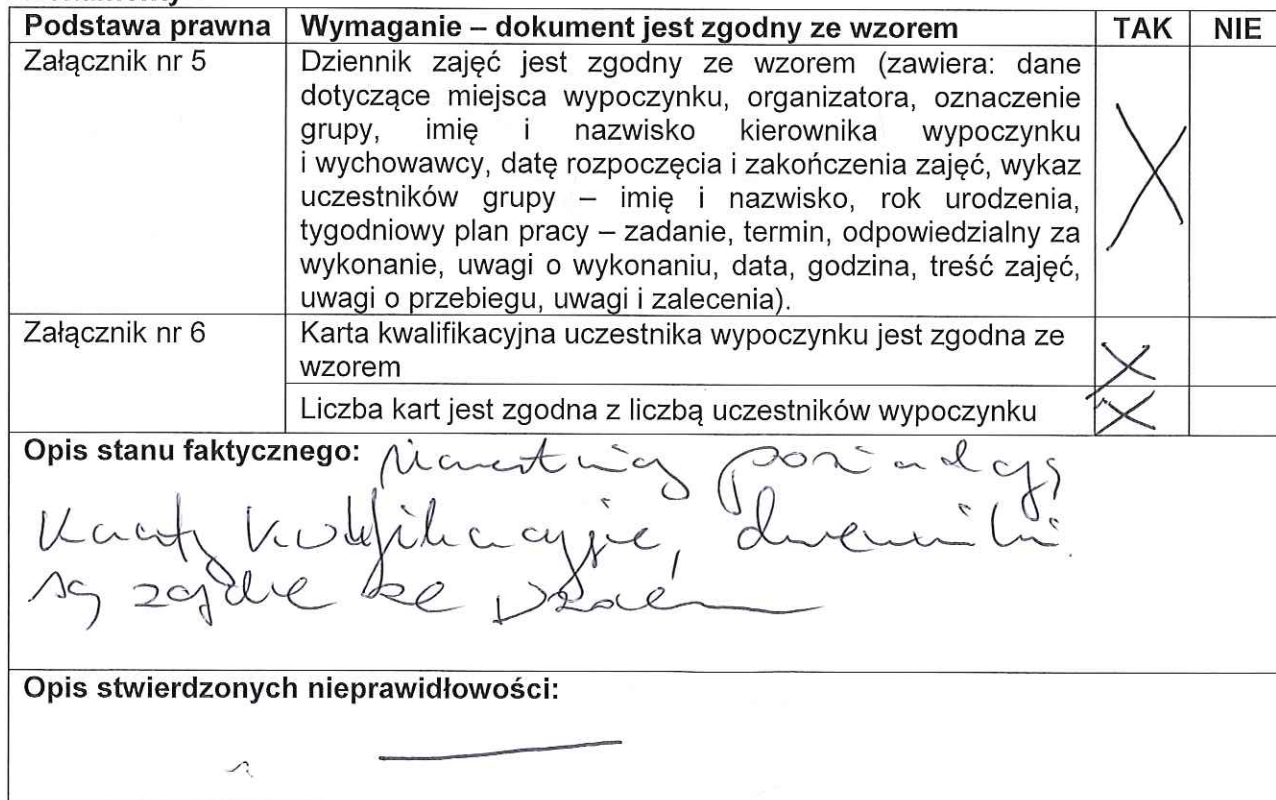 Podstawa prawna | Wymaganie – dokument jest zgodny ze wzorem | TAK | NIE
Załącznik nr 5 | Dziennik zajęć jest zgodny ze wzorem (zawiera: dane
dotyczące miejsca wypoczynku, organizatora, oznaczenie
grupy, imię i nazwisko kierownika wypoczynku
i wychowawcy, datę rozpoczęcia i zakończenia zajęć, wykaz
uczestników grupy – imię i nazwisko, rok urodzenia,
tygodniowy plan pracy – zadanie, termin, odpowiedzialny za
wykonanie, uwagi o wykonaniu, data, godzina, treść zajęć,
uwagi o przebiegu, uwagi i zalecenia). | X
Załącznik nr 6 | Karta kwalifikacyjna uczestnika wypoczynku jest zgodna ze
wzorem | X
Liczba kart jest zgodna z liczbą uczestników wypoczynku | X
Opis stanu faktycznego: Uczestnicy posiadają
Karty kwalifikacyjne, dzienniki
są zgodne ze wzorem
Opis stwierdzonych nieprawidłowości: